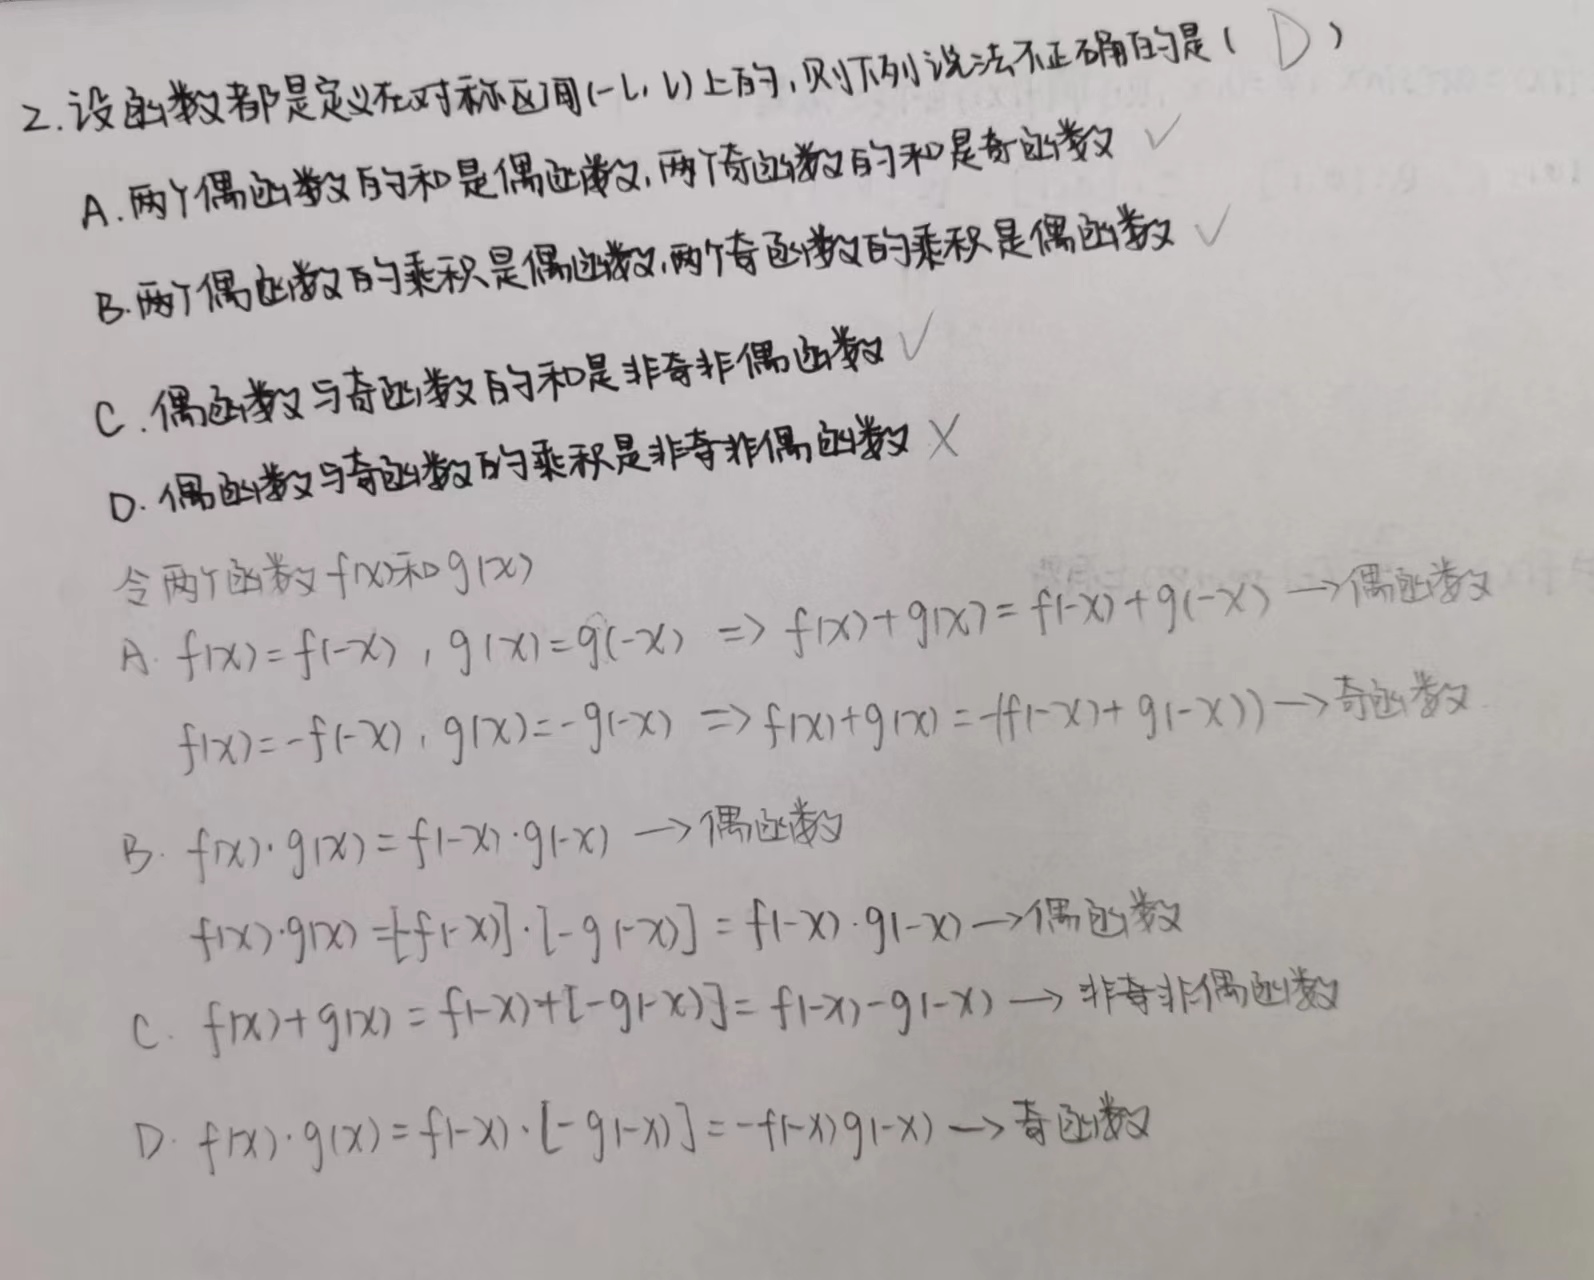 2.设函数都是定义在对称区间(-L,L)上的,则下列说法不正确的是( D )
A.两个偶函数的和是偶函数,两个奇函数的和是奇函数 ✓
B.两个偶函数的乘积是偶函数,两个奇函数的乘积是偶函数 ✓
C.偶函数与奇函数的和是非奇非偶函数 ✓
D.偶函数与奇函数的乘积是非奇非偶函数 ×
令两个函数f(x)和g(x)
A. f(x)=f(-x),g(x)=g(-x) => f(x)+g(x)=f(-x)+g(-x) →偶函数
f(x)=-f(-x),g(x)=-g(-x) => f(x)+g(x)=-(f(-x)+g(-x)) →奇函数
B. f(x)·g(x)=f(-x)·g(-x) →偶函数
f(x)·g(x)=[-f(-x)]·[-g(-x)]=f(-x)·g(-x) →偶函数
C. f(x)+g(x)=f(-x)+[-g(-x)]=f(-x)-g(-x) →非奇非偶函数
D. f(x)·g(x)=f(-x)·[-g(-x)]=-f(-x)g(-x) →奇函数